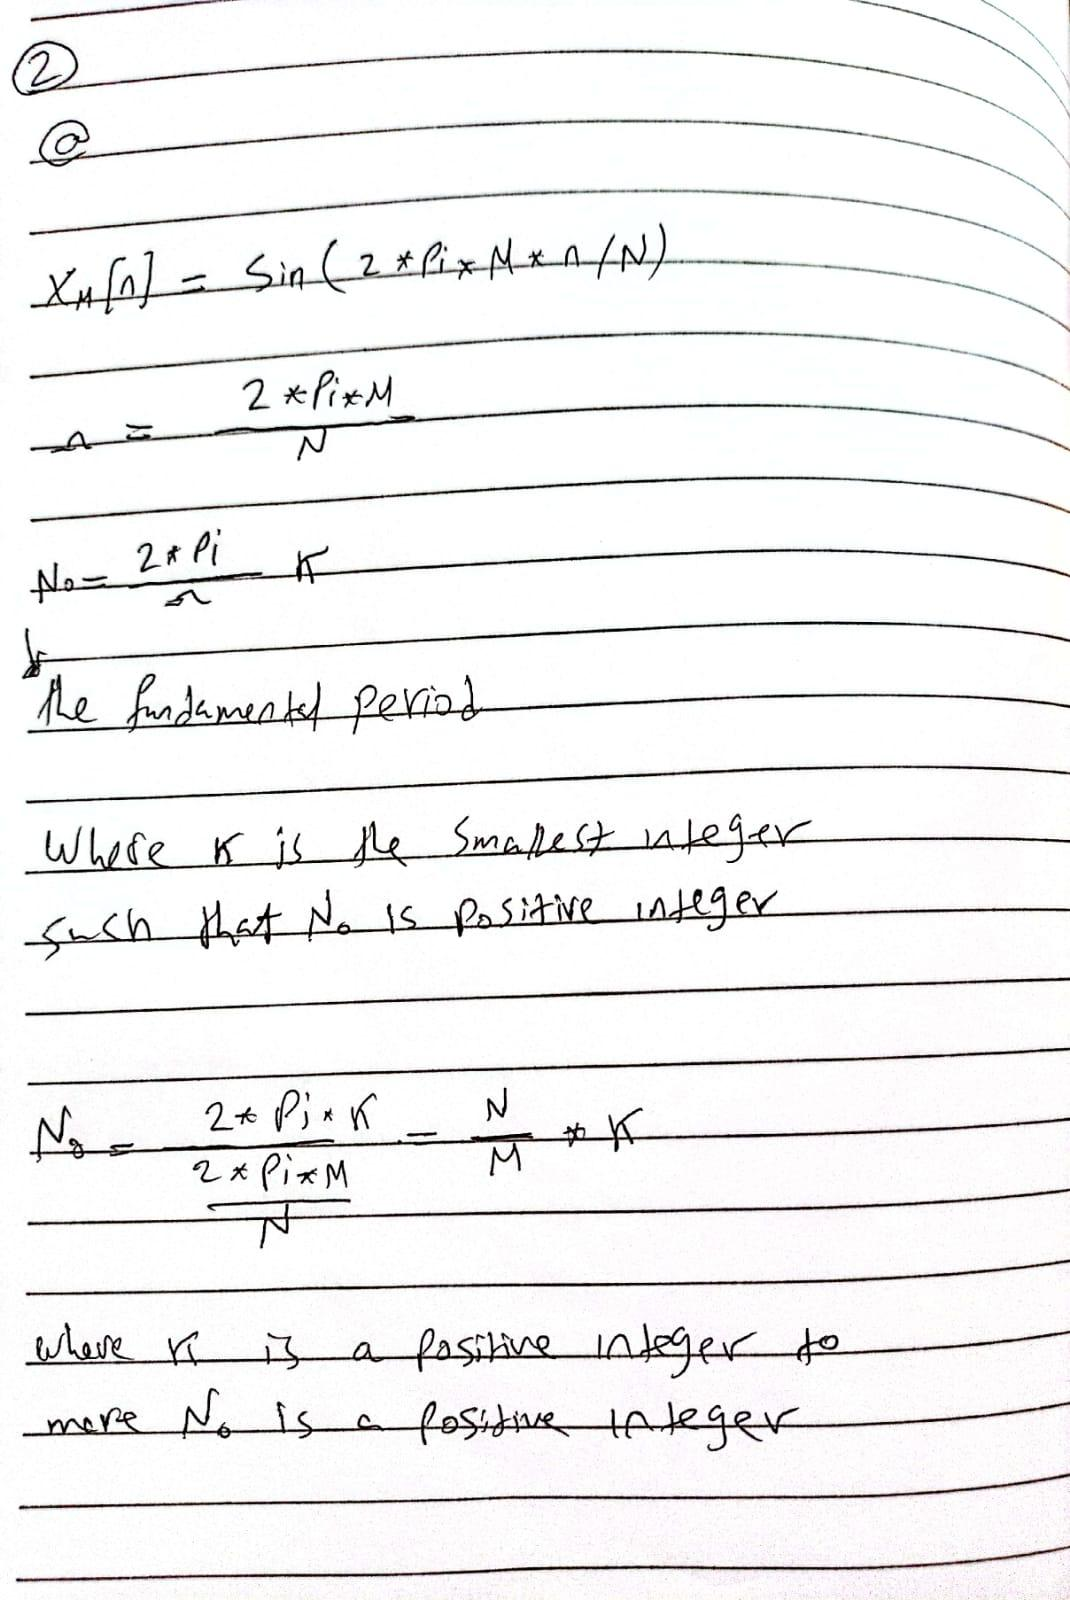 2
a
X_M[n] = Sin(2*Pi*M*n/N)
Ω = 2*Pi*M / N
No = 2*Pi / Ω K
the fundamental period
Where K is the smallest integer
such that No is positive integer
No = 2*Pi*K / (2*Pi*M / N) = N / M * K
where K is a positive integer to
make No is a positive integer